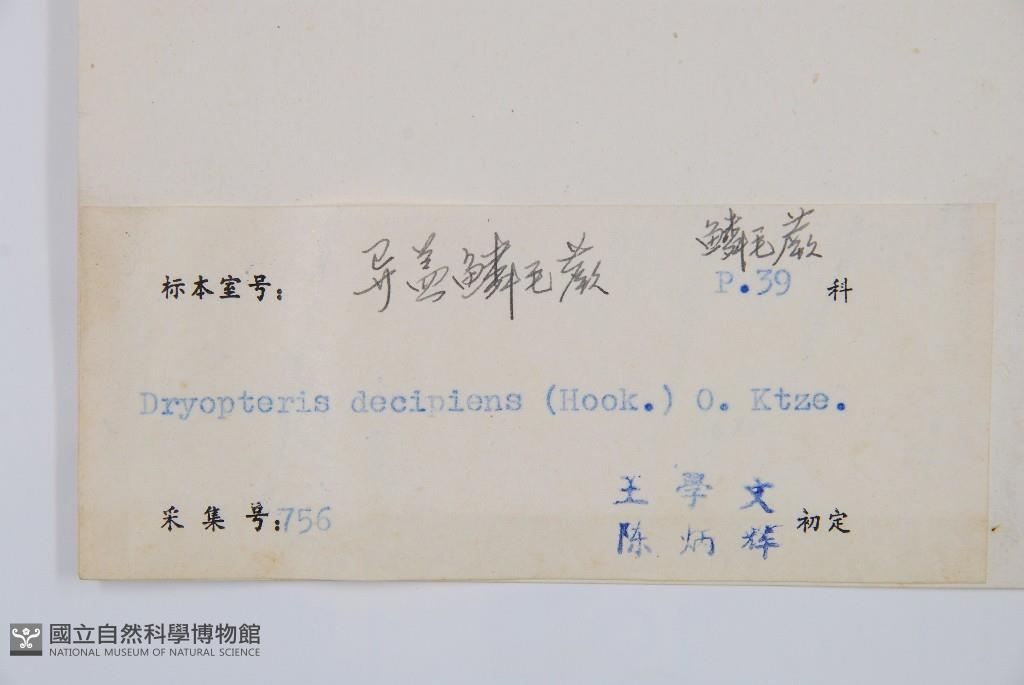 鳞毛蕨
标本室号： 异盖鳞毛蕨 P.39 科
Dryopteris decipiens (Hook.) O. Ktze.
王 學 文
采 集 号：756 初定
陈 炳 辉
國立自然科學博物館
NATIONAL MUSEUM OF NATURAL SCIENCE